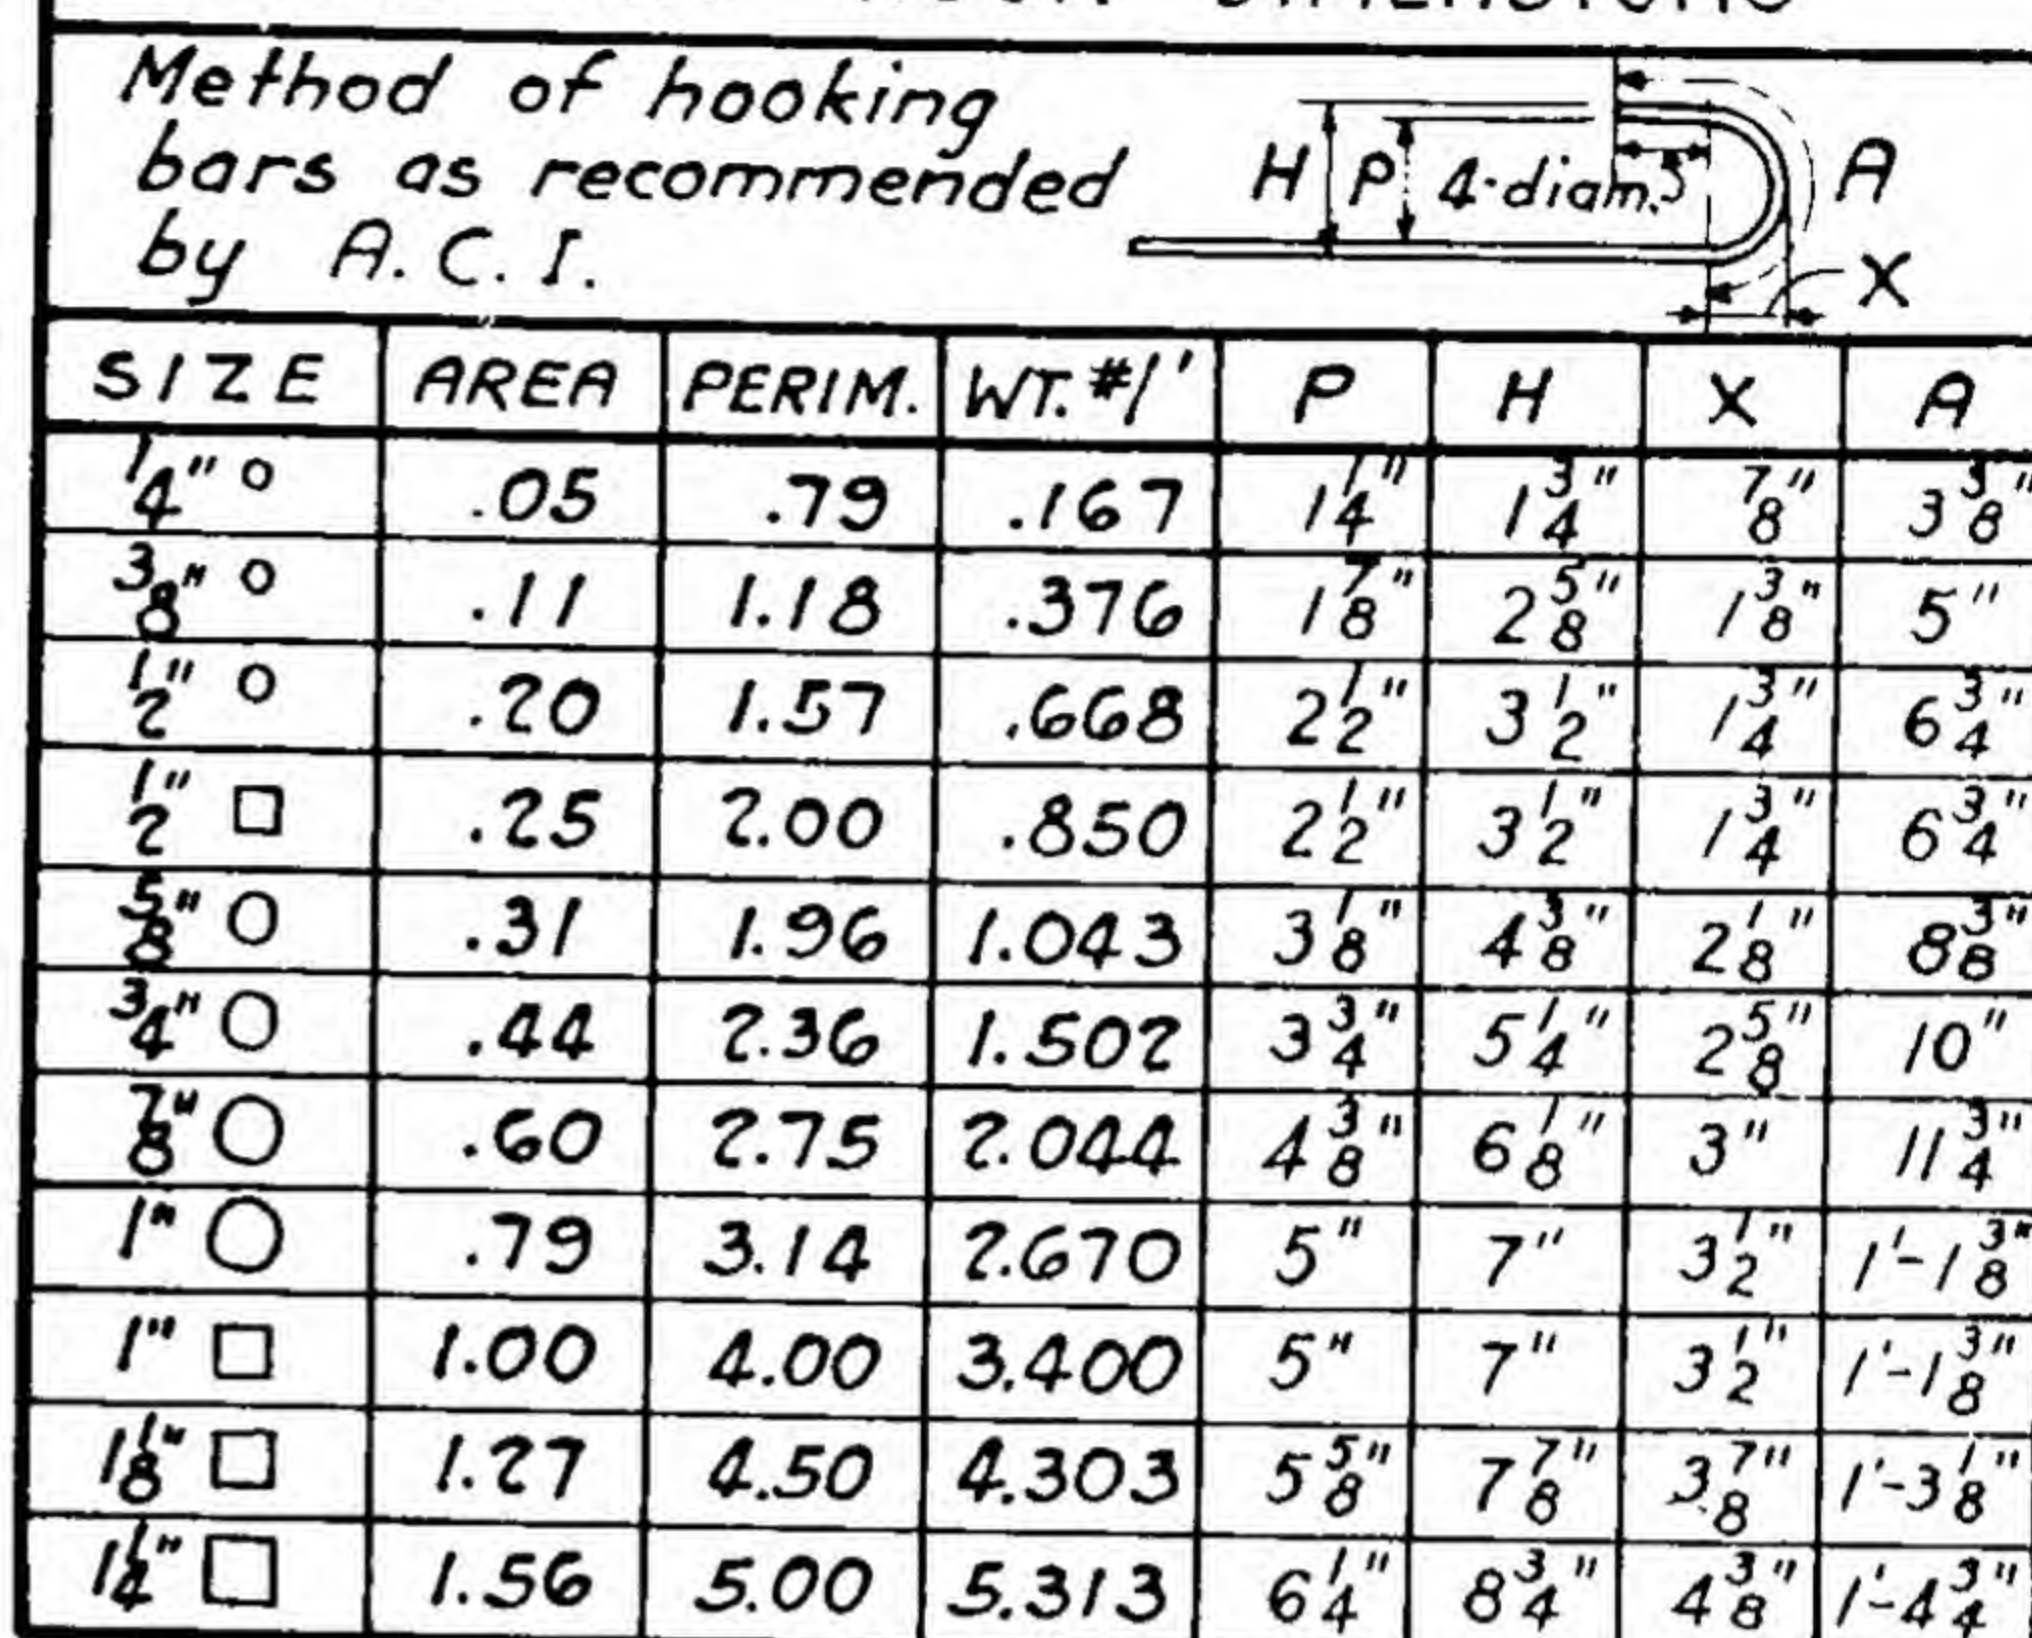 HOOK DIMENSIONS
Method of hooking
bars as recommended
by A.C.I.
H P 4-diam.s A
X
SIZE AREA PERIM. WT.#/' P H X A
1/4" ○ .05 .79 .167 1 1/4" 1 3/4" 7/8" 3 3/8"
3/8" ○ .11 1.18 .376 1 7/8" 2 5/8" 1 3/8" 5"
1/2" ○ .20 1.57 .668 2 1/2" 3 1/2" 1 3/4" 6 3/4"
1/2" □ .25 2.00 .850 2 1/2" 3 1/2" 1 3/4" 6 3/4"
5/8" ○ .31 1.96 1.043 3 1/8" 4 3/8" 2 1/8" 8 3/8"
3/4" ○ .44 2.36 1.502 3 3/4" 5 1/4" 2 5/8" 10"
7/8" ○ .60 2.75 2.044 4 3/8" 6 1/8" 3" 11 3/4"
1" ○ .79 3.14 2.670 5" 7" 3 1/2" 1'-1 3/8"
1" □ 1.00 4.00 3.400 5" 7" 3 1/2" 1'-1 3/8"
1 1/8" □ 1.27 4.50 4.303 5 5/8" 7 7/8" 3 7/8" 1'-3 1/8"
1 1/4" □ 1.56 5.00 5.313 6 1/4" 8 3/4" 4 3/8" 1'-4 3/4"